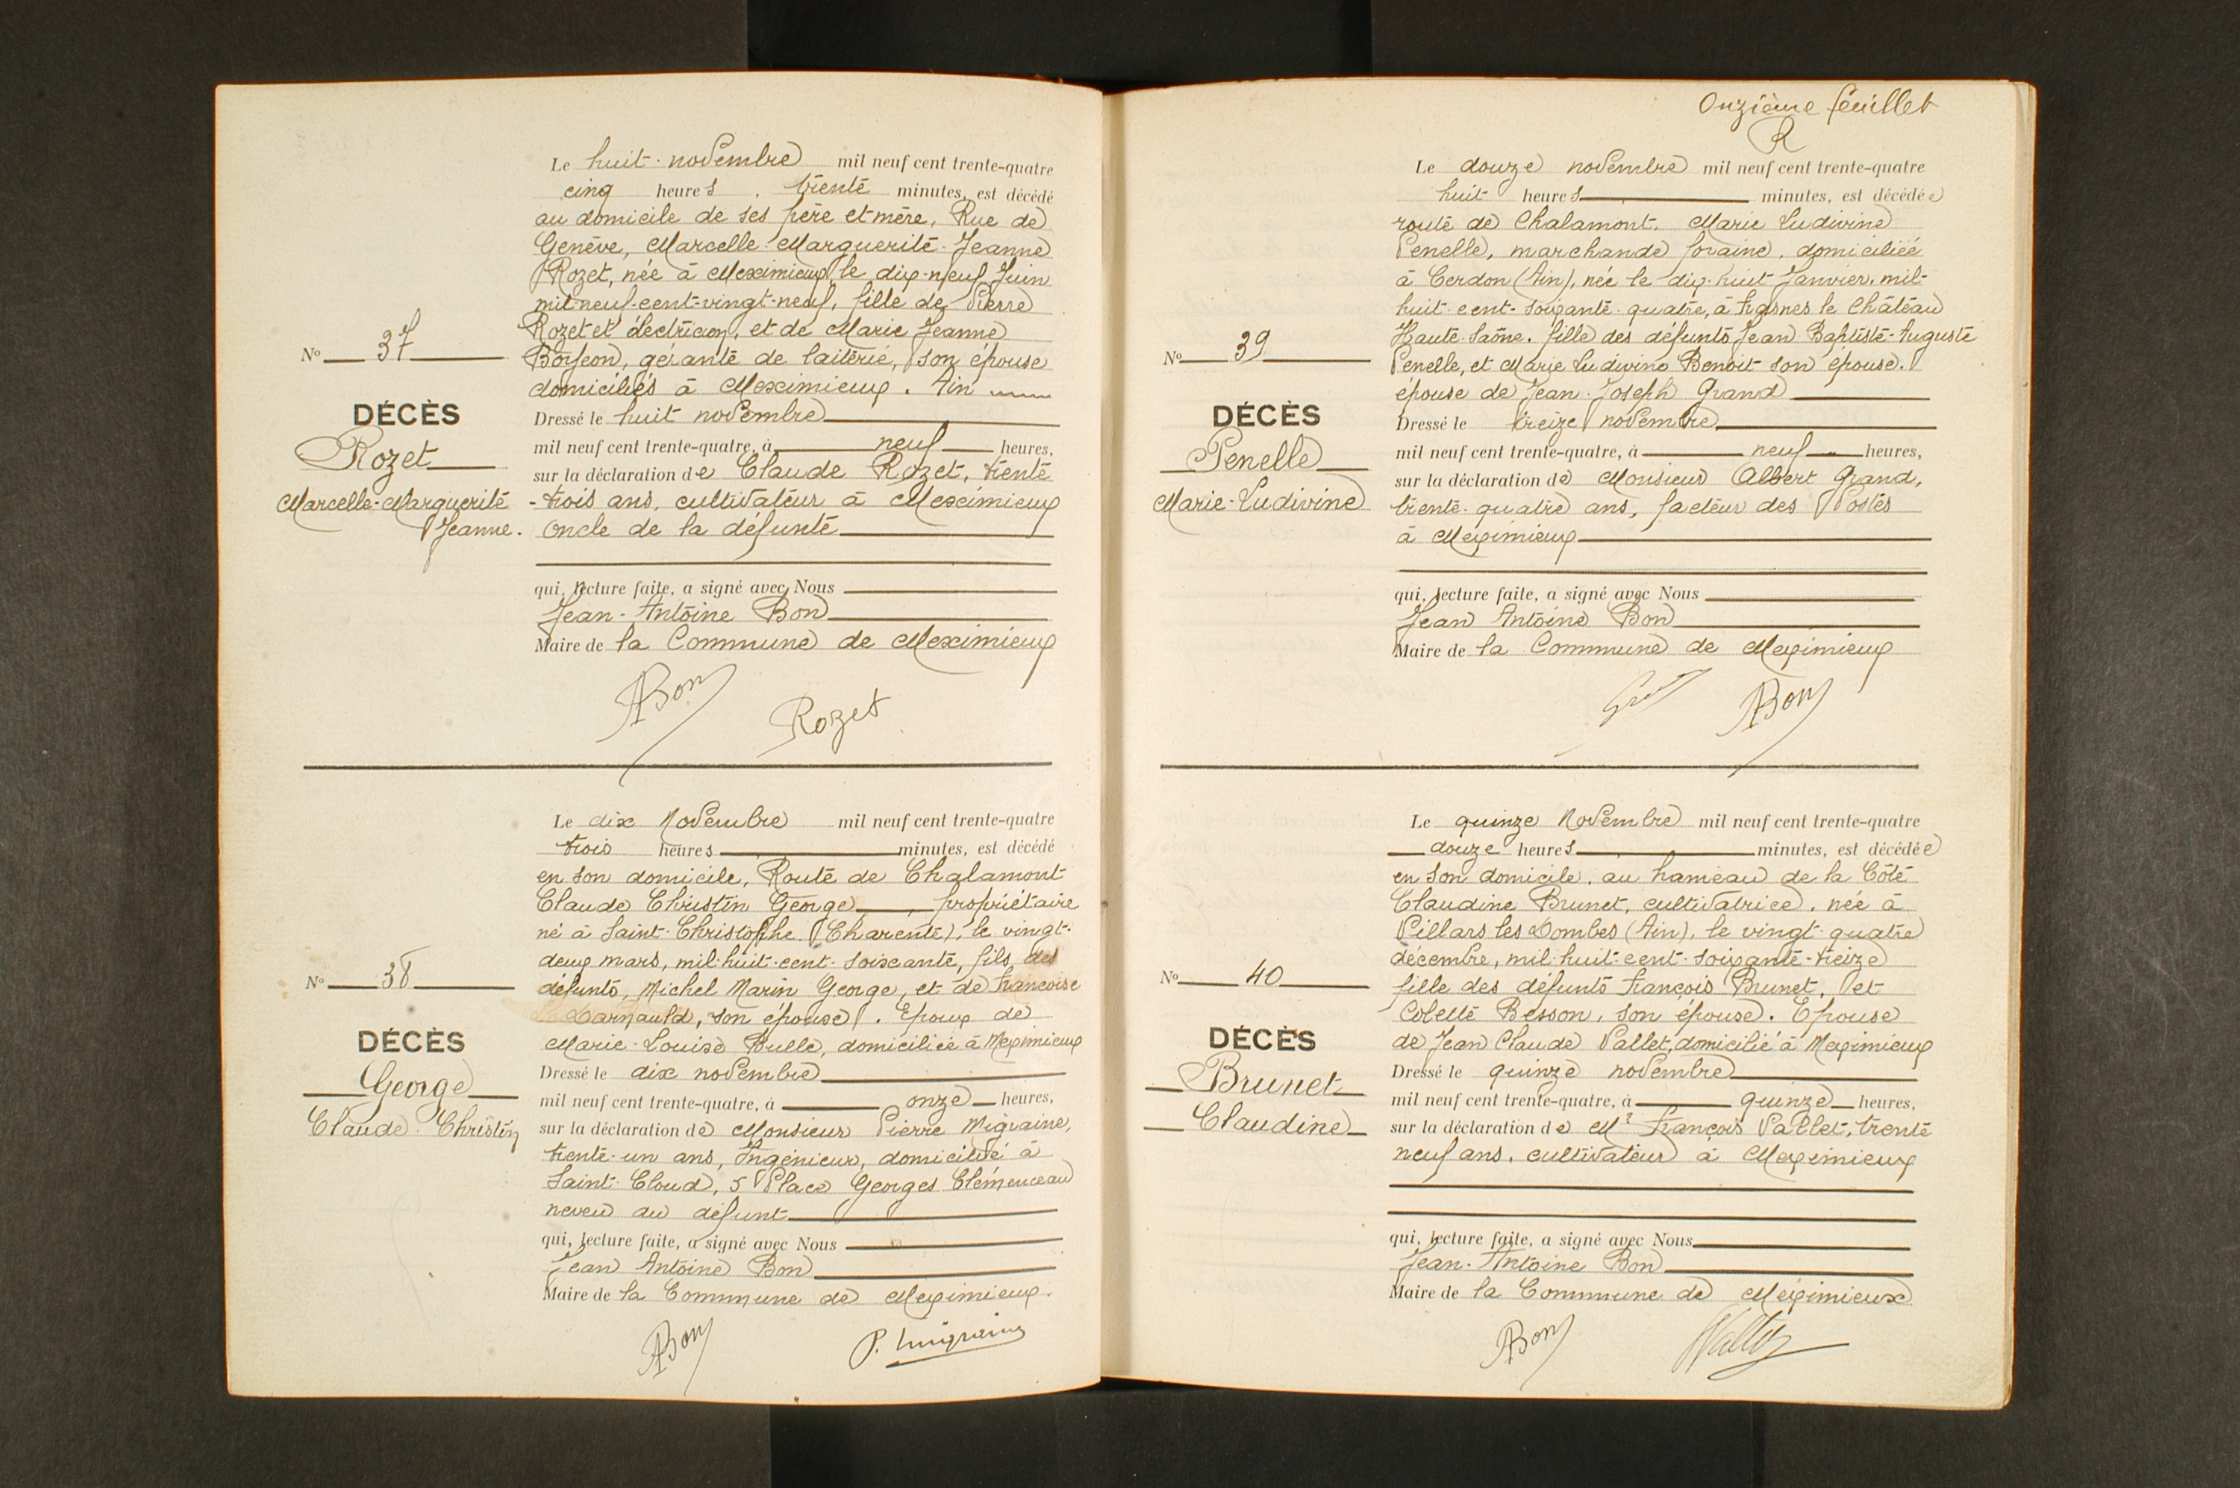 Le huit novembre mil neuf cent trente-quatre
cinq heures, trente minutes, est décédé
au domicile de ses père et mère, Rue de
Genève, Marcelle Marguerite Jeanne
Rozet, née à Meximieux le dix-neuf Juin
mil-neuf-cent-vingt-neuf, fille de Pierre
Rozet et électricien, et de Marie Jeanne
gérante de laiterie, son épouse
domiciliés à Meximieux. Ain
No 37
DÉCÈS
Rozet
Marcelle-Marguerite
Jeanne.
Dressé le huit novembre
mil neuf cent trente-quatre, à neuf heures,
sur la déclaration de Claude Rozet, trente
-trois ans, cultivateur à Meximieux
oncle de la défunte
qui, lecture faite, a signé avec Nous
Jean-Antoine Bon
Maire de la Commune de Meximieux
ABon
Rozet
Le dix Novembre mil neuf cent trente-quatre
trois heures minutes, est décédé
en son domicile, Route de Chalamont
Claude Christin George propriétaire
né à Saint-Christophe (Charente), le vingt-
deux mars, mil-huit-cent-soixante, fils des
défunts, Michel Marin George, et de Françoise
Darnauld, son épouse. Epoux de
Marie-Louise Bulle, domiciliée à Meximieux
No 38
DÉCÈS
George
Claude Christin
Dressé le dix novembre
mil neuf cent trente-quatre, à onze heures,
sur la déclaration de Monsieur Pierre Migraine,
trente-un ans, Ingénieur, domicilié à
Saint-Cloud, 5 Place Georges Clémenceau
neveu du défunt
qui, lecture faite, a signé avec Nous
Jean Antoine Bon
Maire de la Commune de Meximieux.
ABon
P. Migraine
Onzième feuillet
R
Le douze novembre mil neuf cent trente-quatre
huit heures minutes, est décédée
route de Chalamont. Marie Ludivine
Penelle, marchande foraine, domiciliée
à Cerdon (Ain), née le dix-huit Janvier, mil-
huit-cent-soixante-quatre, à Frasnes le Château
Haute-Saône. fille des défunts Jean Baptiste-Auguste
Penelle, et Marie Ludivine Benoit son épouse.
épouse de Jean-Joseph Grand
No 39
DÉCÈS
Penelle
Marie-Ludivine
Dressé le treize novembre
mil neuf cent trente-quatre, à neuf heures,
sur la déclaration de Monsieur Albert Grand,
trente-quatre ans, facteur des Postes
à Meximieux
qui, lecture faite, a signé avec Nous
Jean Antoine Bon
Maire de la Commune de Meximieux
ABon
Le quinze Novembre mil neuf cent trente-quatre
douze heures minutes, est décédée
en son domicile, au hameau de la Côte
Claudine Brunet, cultivatrice, née à
Villars les Dombes (Ain), le vingt-quatre
décembre, mil-huit-cent-soixante-treize
fille des défunts François Brunet, et
Colette Besson, son épouse. Epouse
de Jean Claude Vallet, domicilié à Meximieux
No 40
DÉCÈS
Brunet
Claudine
Dressé le quinze novembre
mil neuf cent trente-quatre, à quinze heures,
sur la déclaration de Mr François Vallet, trente
neuf ans, cultivateur à Meximieux
qui, lecture faite, a signé avec Nous
Jean-Antoine Bon
Maire de la Commune de Meximieux
ABon